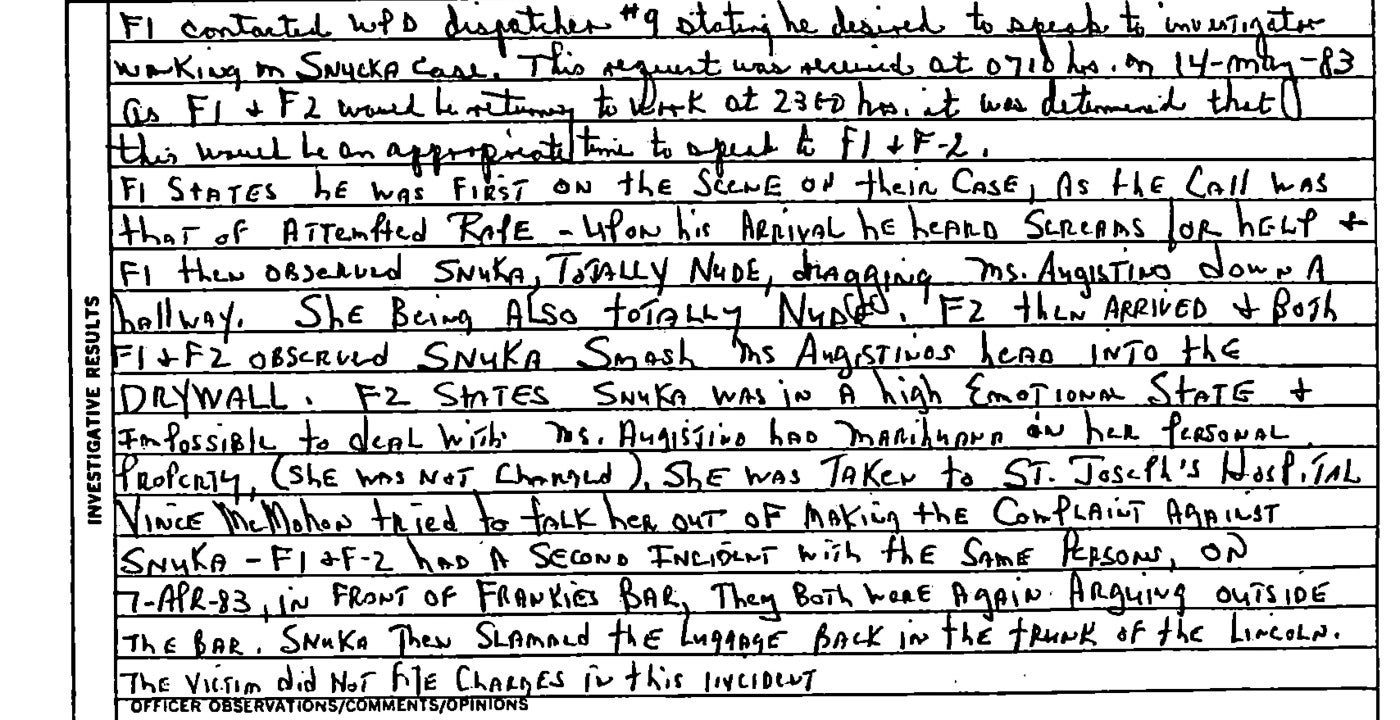 F1 contacted WPD dispatcher #9 stating he desired to speak to investigator
working on SNUCKA case. This request was received at 0710 hrs. on 14-May-83
as F1 & F2 would be returning to work at 2300 hrs. it was determined that
this would be an appropriate time to speak to F1 & F-2.
F1 STATES HE WAS FIRST ON the SCENE ON their CASE, AS the CALL WAS
that of ATTEMPTED RAPE - UPON his ARRIVAL HE HEARD SCREAMS FOR HELP &
F1 then OBSERVED SNUKA, TOTALLY NUDE, dragging Ms. AUGISTINO down A
hallway. SHE BEING ALSO TOTALLY NUDE. F2 then ARRIVED & Both
F1 & F2 OBSERVED SNUKA SMASH Ms AUGISTINOS head INTO the
DRYWALL. F2 STATES SNUKA WAS IN A high EMOTIONAL STATE &
IMPOSSIBLE to deal with. Ms. AUGISTINO had MARIHUANA in her PERSONAL
PROPERTY, (SHE WAS NOT CHARGED), SHE WAS TAKEN to ST. JOSEPH'S HOSPITAL
VINCE McMAHON tried to tALK her OUT OF MAKING the COMPLAINT AGAINST
SNUKA - F1 & F-2 had A SECOND INCIDENT with the SAME PERSONS, ON
7-APR-83, IN FRONT OF FRANKIES BAR, They BOTH WERE AGAIN ARGUING OUTSIDE
THE BAR. SNUKA Then SLAMMED the LUGGAGE BACK in the TRUNK of the LINCOLN.
THE VICTIM did NOT FILE CHARGES in this INCIDENT
INVESTIGATIVE RESULTS
OFFICER OBSERVATIONS/COMMENTS/OPINIONS